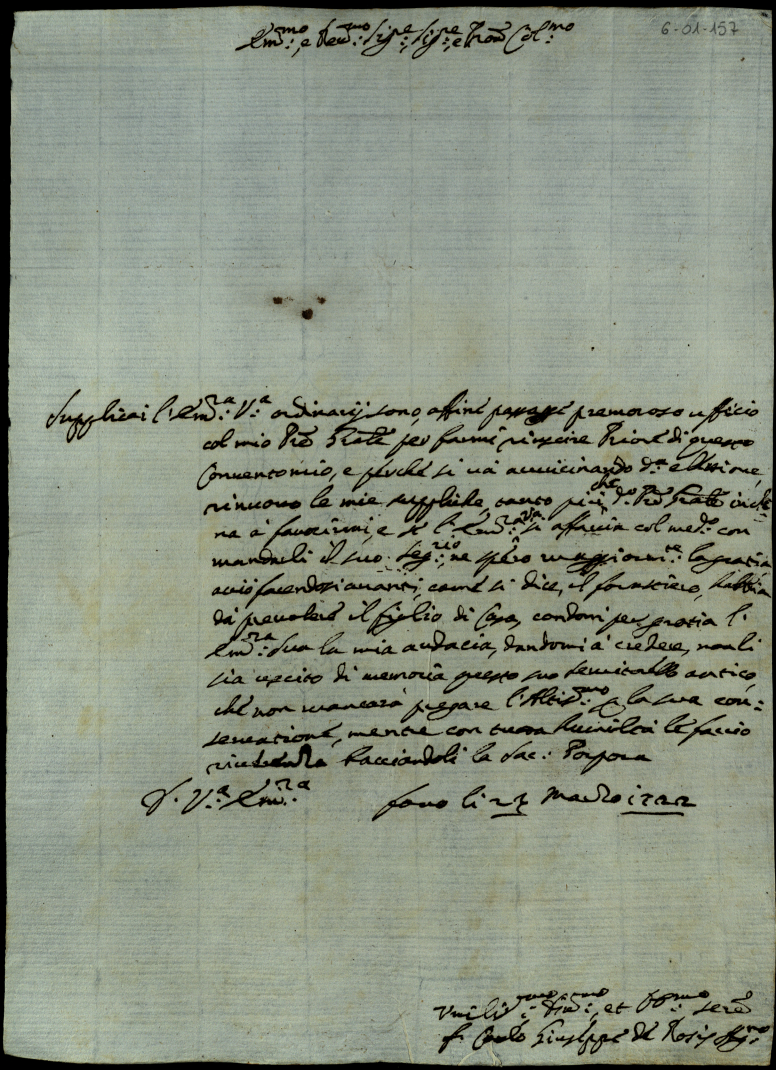 6-01-157
Em.mo, e Rev.mo Sig.re, Sig.re, e Pron Col.mo
Supplicai l'Em.ra V.a ordinarij sono, affine passasse premoroso ufficio
col mio Pre Gnale per farmi riuscire Priore di questo
Convento mio, e perche si và avvicinando d.a elettione,
rinuovo le mie suppliche, tanto più che d.o Pre Gnale incli
na à favorirmi, e se l'Em.ra Va si affaccia col med.o con
mandarli il suo seg.rio, ne spero maggiorm.te la gratia
facendosi avanti, come si dice, il forastiero, debbia
da prevalere il figlio di Casa, condoni per gratia l'
Em.ra Sua la mia audacia, dandomi à credere, non li
sia uscito di memoria questo suo servitorello antico,
che non mancarà pregare l'Altis.mo p la sua con:
servatione, mentre con tutta humiltà le faccio
riverenza bacciandoli la Sac: Porpora
D. V.a Em.ra
Fano li 23 Marzo 1722
Umilis.mo Dev.mo, et Obb.mo Sere
f. Carlo Giuseppe de Rosis